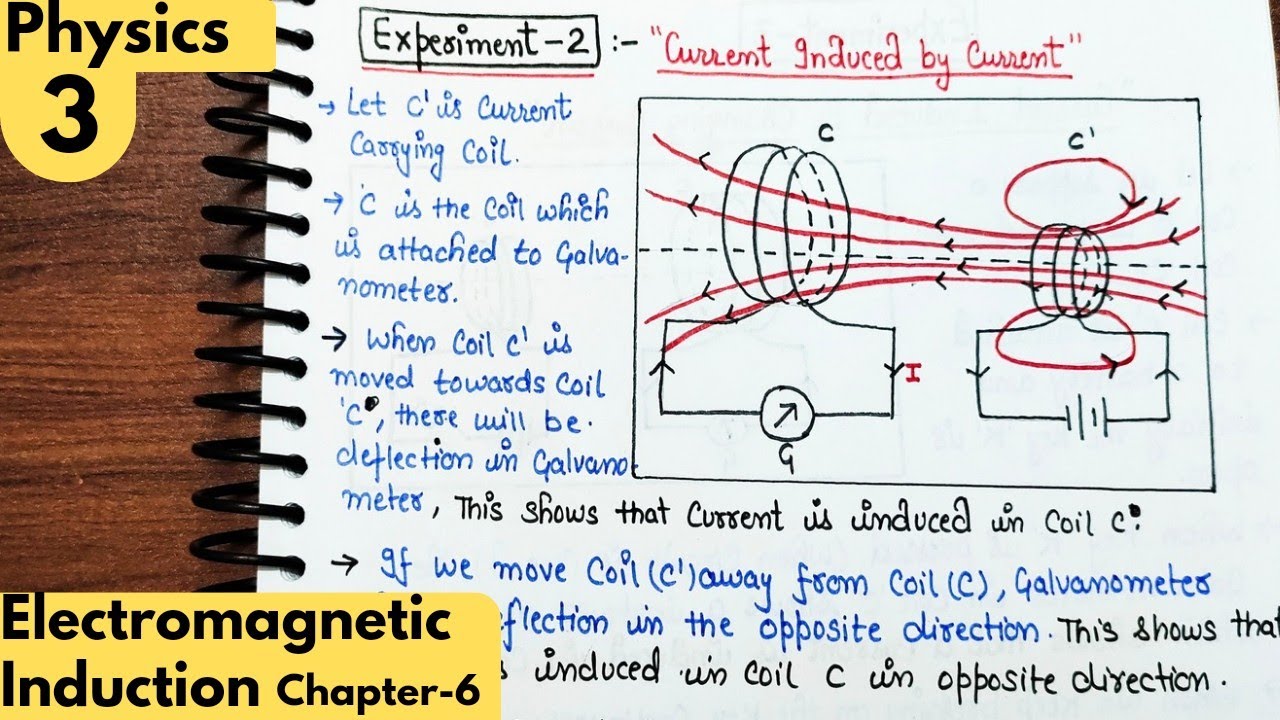 Physics
3
Experiment-2 :- "Current Induced by Current"
→ Let C' is Current
Carrying Coil.
→ 'C' is the Coil which
is attached to Galva-
nometer.
→ When Coil C' is
moved towards Coil
'C', there will be
deflection in Galvano
meter, This shows that Current is induced in Coil C.
→ If we move Coil (C') away from Coil (C), Galvanometer
eflection in the opposite direction. This shows that
induced in Coil C in opposite direction.
C
C'
I
G
Electromagnetic
Induction Chapter-6